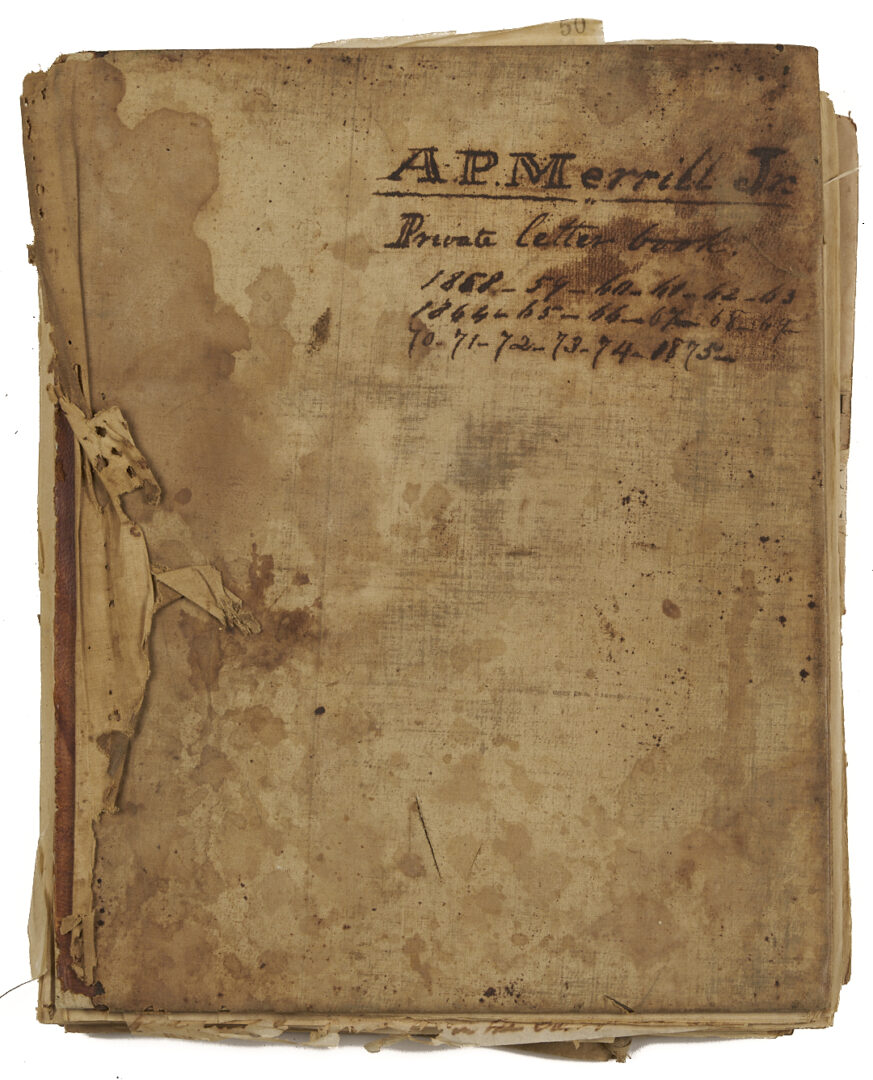 50
A.P. Merrill Jr.
Private letter book,
1858 - 59 - 60 - 61 - 62 - 63
1864 - 65 - 66 - 67 - 68 - 69 -
70 - 71 - 72 - 73 - 74 - 1875 -